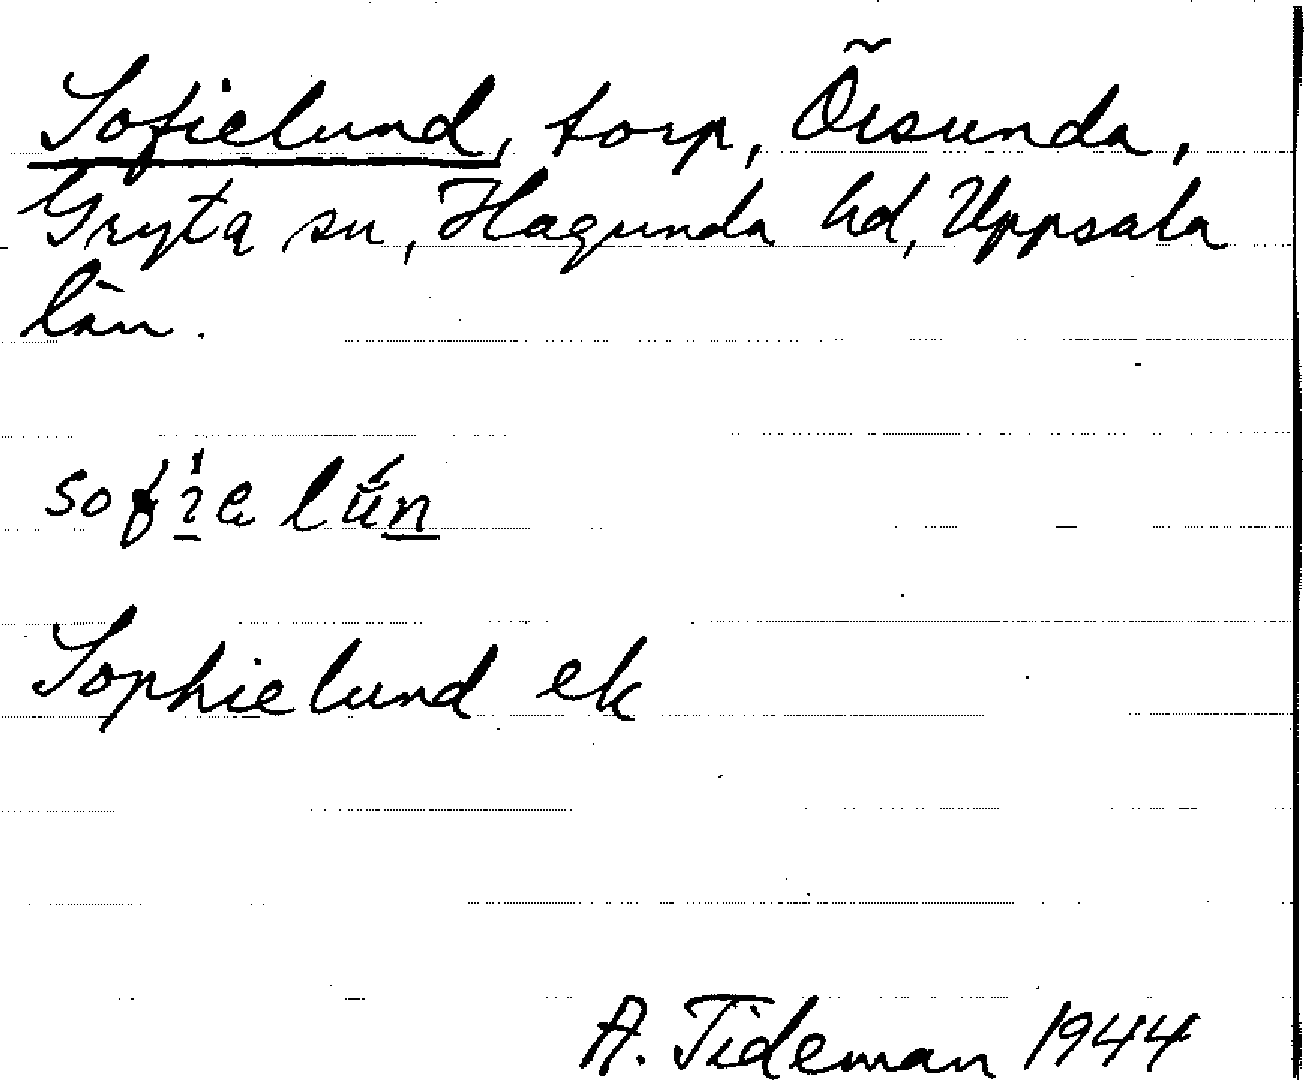 Sofielund, torp, Örsunda,
Gryta sn, Hagunda hd, Uppsala
län.
Sophielund ek
A. Tideman 1944